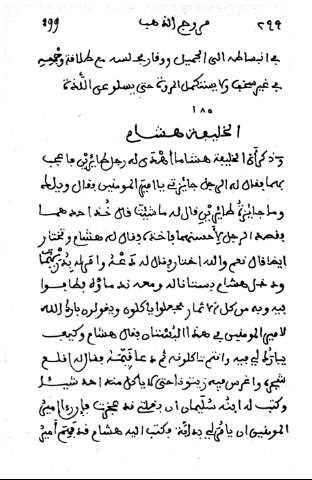 ٢٩٩ مروج الذهب 299
في انبساطه الى الجميل ووقار مجلسه مع طلاقة وجهه
في غير سخف ولا يستكمل المروة حتى يسلو عن اللذة
١٨٥
الخليفة هشام
وذكر ان الخليفة هشاما اهدى له رجل طائرين فاعجب
بهما فقال له الرجل جائزتي يا امير المومنين فقال ويلك
وما جائزة طائرين قال له ما شئت قال خذ احدهما
فقصد الرجل لاحسنهما فاخذه فقال له هشام وتختار
ايضا قال نعم والله اختار فقال له دعه وامر له بدريهمات
ودخل هشام بستانا له ومعه ندماوه فطافوا
فيه وبه من كل الثمار فجعلوا ياكلون ويقولون بارك الله
لامير المومنين في هذا البستان فقال هشام وكيف
يبارك لي فيه وانتم تاكلونه ثم دعا قيمه فقال له اقلع
شجره واغرس فيه زيتونا حتى لا ياكل منه احد شيئا
وكتب له ابنه سليمان ان بغلتي قد عجزت فان راى امير
المومنين ان يامر لي بدابة فكتب اليه هشام قد فهم امير